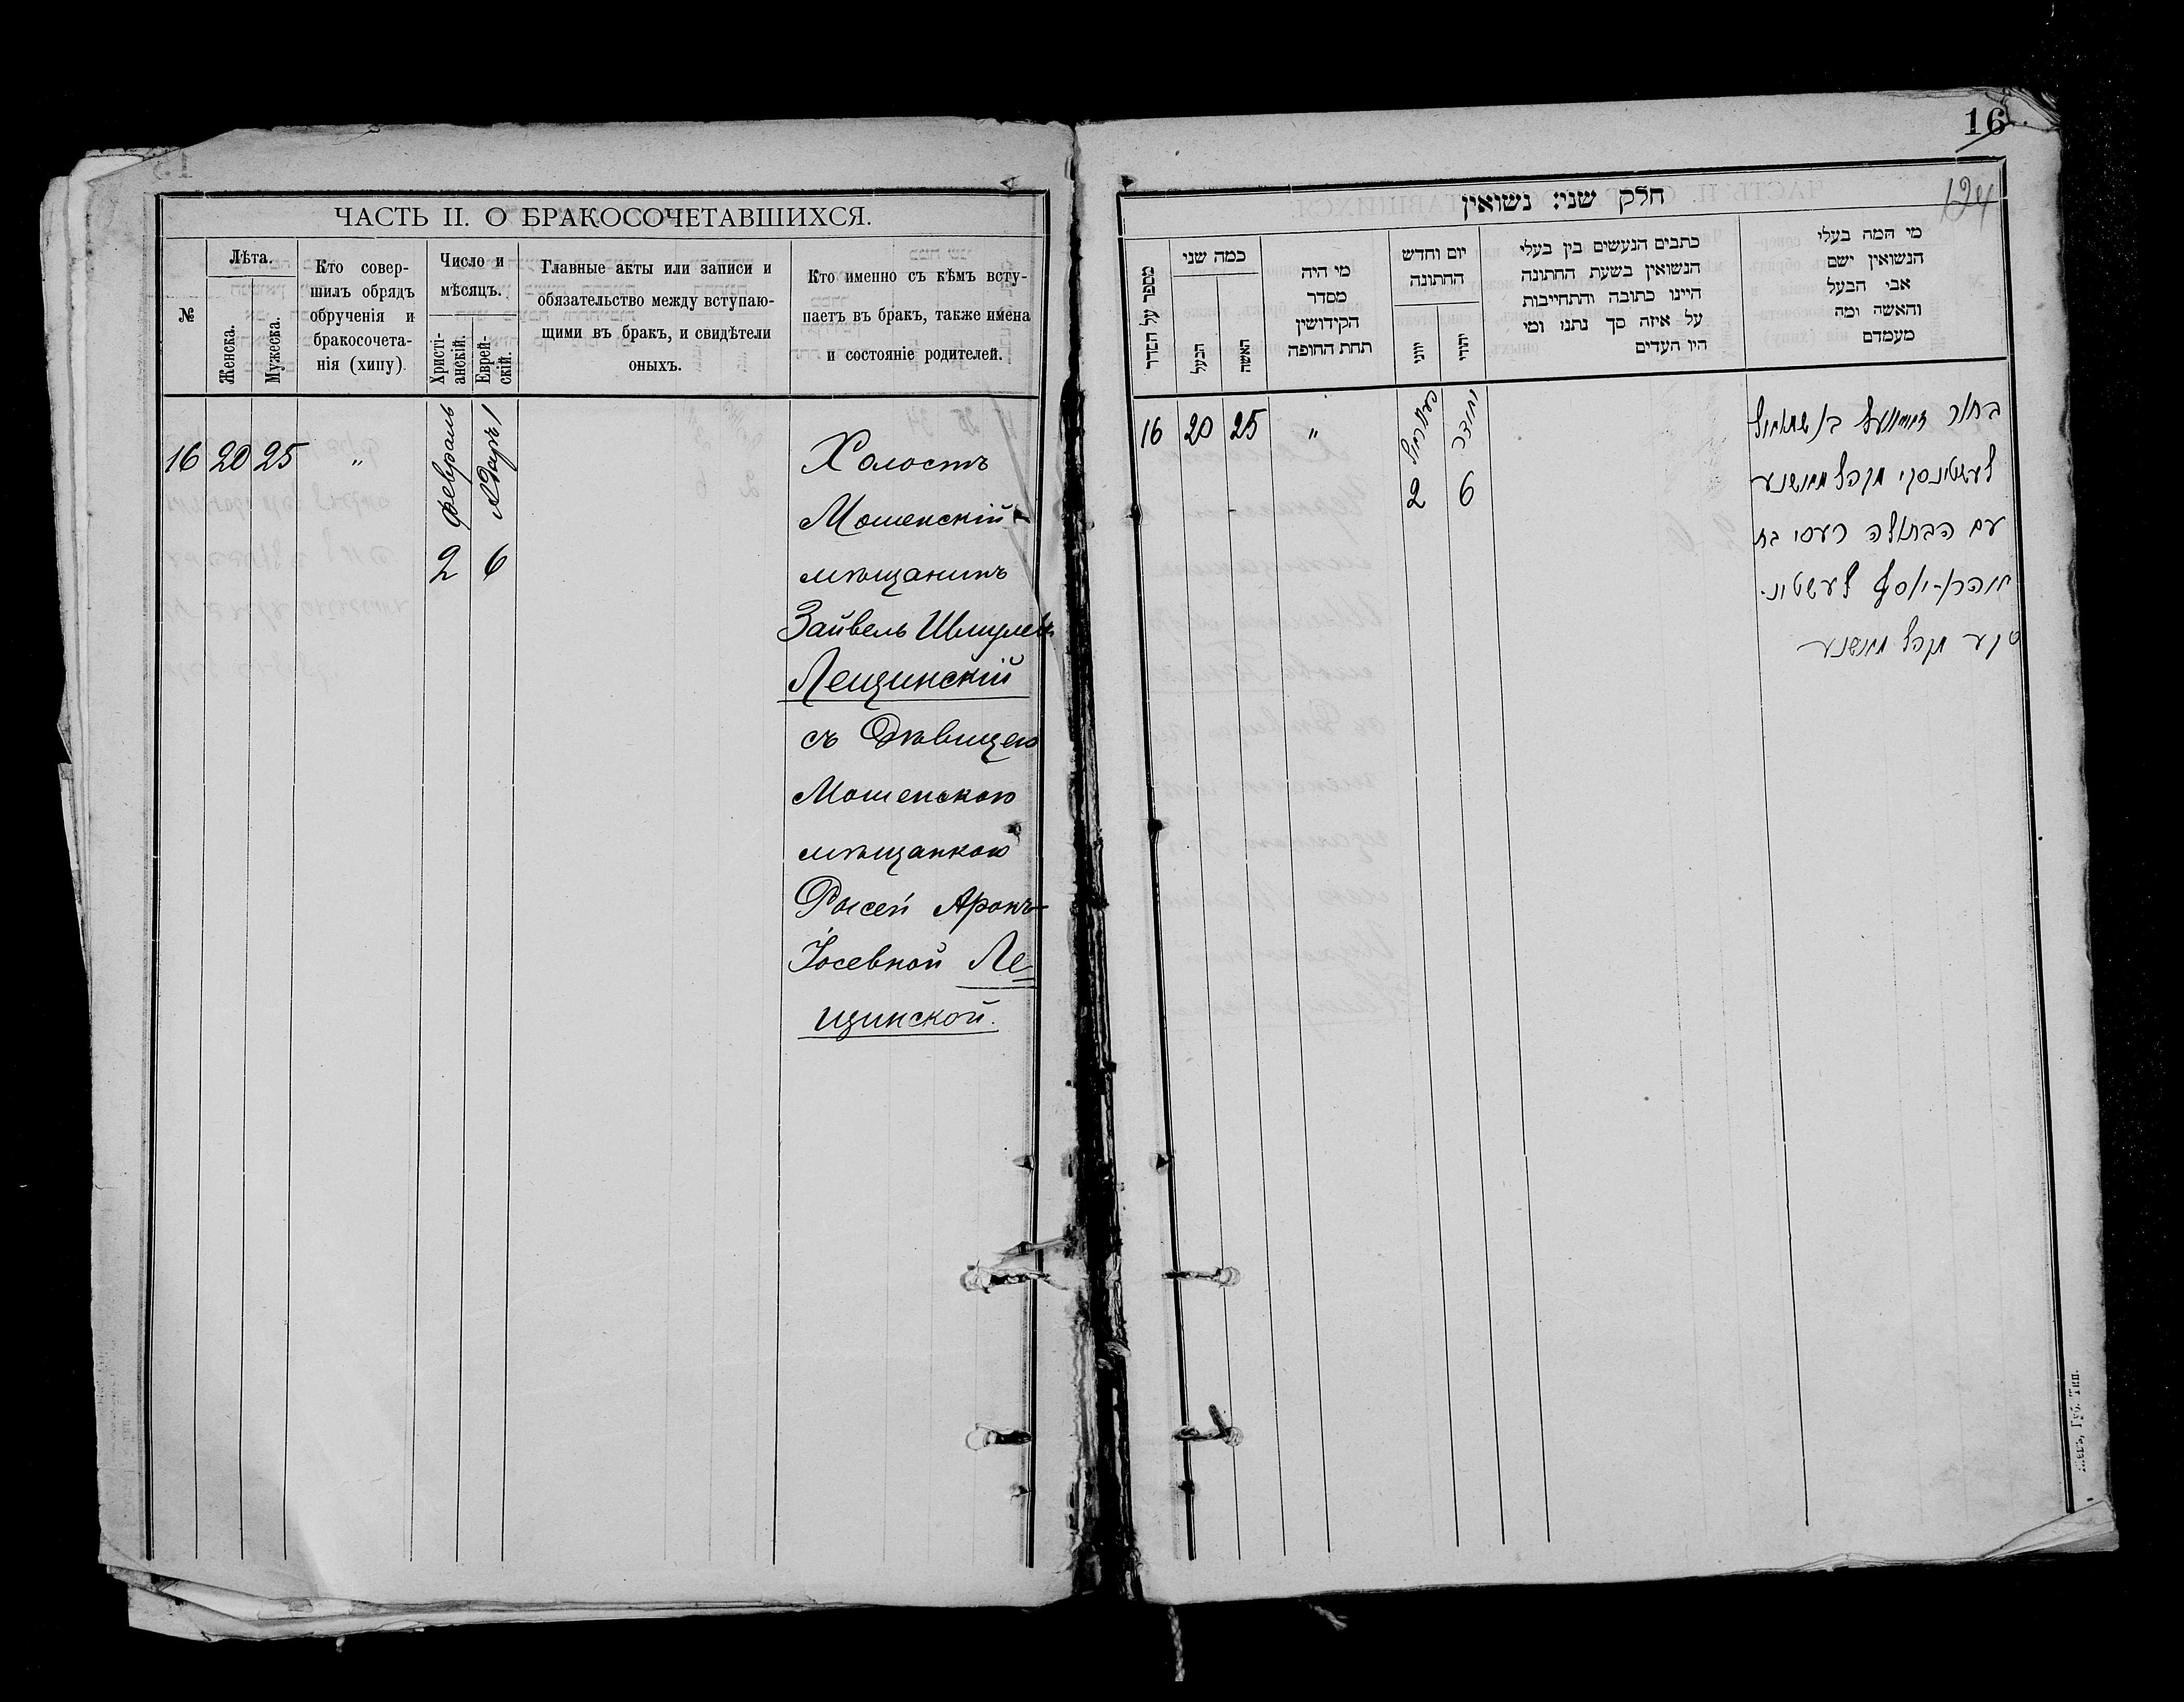 ЧАСТЬ II. О БРАКОСОЧЕТАВШИХСЯ.
№
Лѣта.
Женска.
Мужеска.
Кто совер-
шилъ обрядъ
обрученія и
бракосочета-
нія (хипу).
Число и
мѣсяцъ.
Христі-
анскій.
Еврей-
скій.
Главные акты или записи и
обязательство между вступаю-
щими въ бракъ, и свидѣтели
оныхъ.
Кто именно съ кѣмъ всту-
паетъ въ бракъ, также имена
и состояніе родителей.
16 20 25 "
Февраль
2
Адаръ 1
6
Холостъ
Мошенскій
мѣщанинъ
Зайвель Шмулевъ
Лещинскій
съ Дѣвицею
Мошенскою
мѣщанкою
Рысей Аронъ-
Іосевной Ле-
щинской.
16
124
חלק שני: נשואין
מספר על הסדר
כמה שני
הבעל
האשה
מי היה
מסדר
הקידושין
תחת החופה
יום וחדש
החתונה
יוני
יהודי
כתבים הנעשים בין בעלי
הנשואין בשעת החתונה
היינו כתובה והתחייבות
על איזה סך נתנו ומי
היו העדים
מי המה בעלי
הנשואין ושם
אבי הבעל
והאשה ומה
מעמדם
16 20 25 "
2
6
בחור זיוועל בן שמואל
לעשטינסקי מקהל מאשנע
עם הבתולה רעסי בת
אהרן-יוסף לעשטינ-
סקי מקהל מאשנע
Губ. Тип.